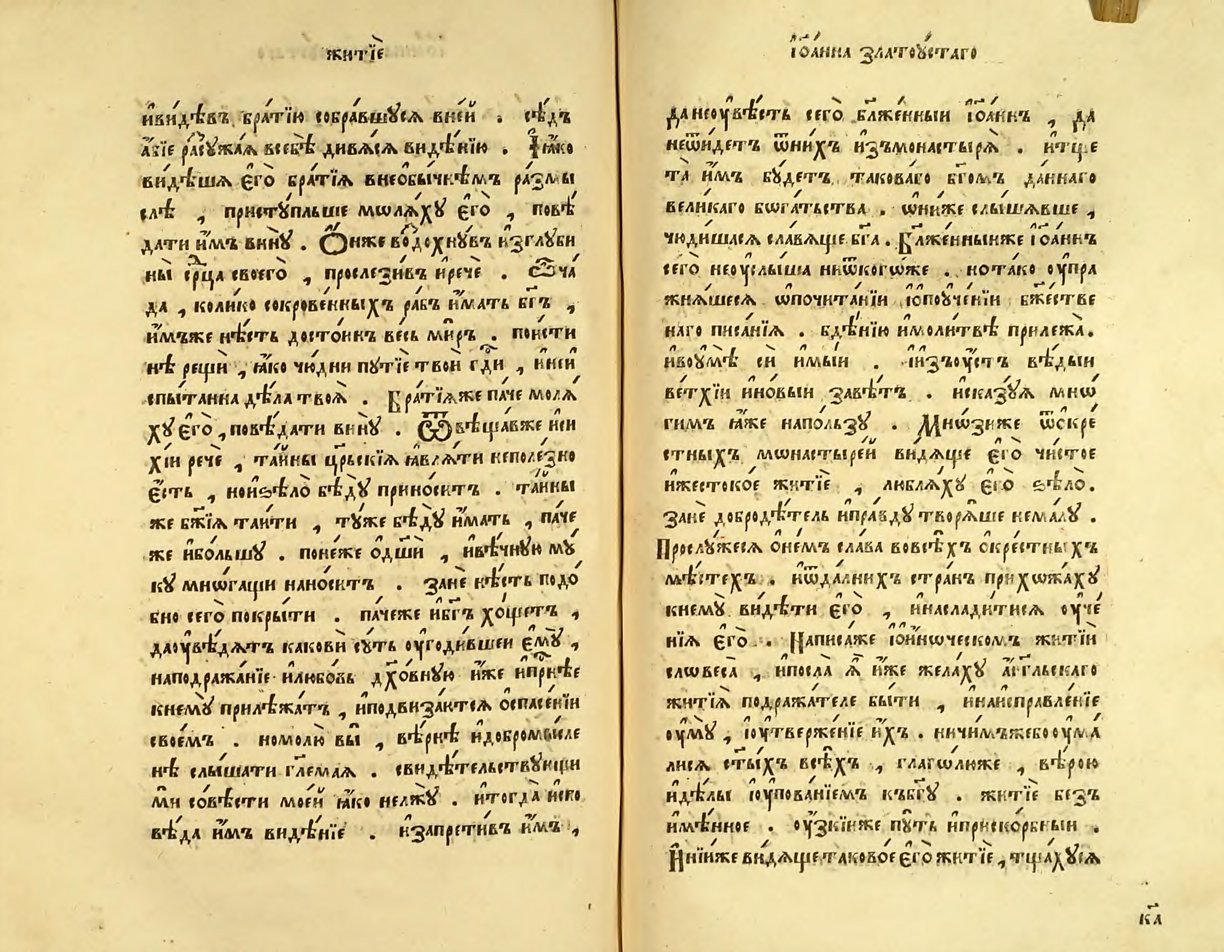 житїѐ
и҆ви́дѣвъ бра́тїю собра́вшꙋсѧ вне́й . сѣ́дъ
а҆́бїе расꙋжаѧ всебѣ̀ дивѧ́сѧ видѣ́нїю . Ꙗ҆́ко
видѣшѧ є҆го̀ бра́тїѧ внеѻбы́чнѣмъ ра́змы
слѣ , пристꙋ́пльше мѡлѧ́хꙋ є҆го̀ , повѣ́
дати и҆̀мъ винꙋ̀ . Ѻ҆́нже воздохнꙋ́въ и҆зглꙋби
ны̀ ср҃ца своего̀ , прослези́въ и҆речѐ . Ѽча́
да , коли́ко сокрове́нныхъ ра́бъ и҆́мать бг҃ъ ,
и҆́мъже нѣ́сть досто́инъ весь ми́ръ . пои́сти
нѣ рещѝ , ꙗ҆́ко чю́дни пꙋтїѐ твоѝ гд҇и , и҆неи
спы́танна дѣ́ла твоѧ̀ . Бра́тїѧже па́че молѧ́
хꙋ є҆го̀ , повѣ́дати винꙋ̀ . Ѿвѣща́вже и҆си
хїи речѐ , та́йны цр҃ьскїѧ ꙗ҆влѧ́ти неполе́зно
є҆́сть , нои҆ѕѣло̀ бѣдꙋ̀ прино́ситъ . та́йны
же бж҃їѧ таи́ти , тꙋ́же бѣдꙋ̀ и҆́мать , па́че
же и҆бо́льшꙋ . поне́же ѻ҆дш҃и , и҆вѣ́чнꙋю мꙋ́
кꙋ мнѡ́гащи нано́ситъ . занѐ нѣ́сть подо́
бно сего̀ покры́ти . па́чеже и҆бг҃ъ хо́щетъ ,
даоу҆вѣ́дѧтъ какови̂ сꙋ́ть оу҆годи́вшеи є҆мꙋ̀ ,
наподража́нїе и҆любо́вь дх҃о́внꙋю и҆̀же и҆при́снѣ
кнемꙋ̀ прилѣ́жатъ , и҆подвиза́ютсѧ ѻ҆спасе́нїи
свое́мъ . номолю̀ вы̀ , вѣ́рнѣ и҆добромы́сле
нѣ слы́шати гл҃емаѧ . свидѣ́тельствꙋющи
мѝ со́вѣсти мое́й ꙗ҆́ко нелжꙋ̀ . и҆тогда̀ и҆спо
вѣ́да и҆̀мъ видѣ́нїе . и҆запрети́въ и҆̀мъ ,
і҆ѡа́нна златоꙋ́стаго
да неоу҆вѣ́сть сего̀ бл҃же́нныи і҆ѡа́ннъ , да
неѿи́детъ ѿни́хъ и҆зъмонастырѧ̀ . и҆тще
та̀ и҆̀мъ бꙋ́детъ такова́го бг҃омъ да́ннаго
вели́каго бѡга́тьства . ѡ҆ни́же слы́шѧвше ,
чюди́шасѧ сла́вѧще бг҃а . Бл҃же́нныиже і҆ѡа́ннъ
сего̀ неоу҆слы́ша ниѿкого́же . нота́ко оу҆пра
жнѧ́шесѧ ѡ҆почита́нїи і҆ѻпоꙋче́нїи бж҃е́стве
наго писа́нїѧ . бдѣ́нїю и҆моли́твѣ прилежа̀ .
и҆воꙋ҆мѣ̀ сѝ и҆мы́и . и҆изъꙋ́стъ вѣ́дыи
ве́тхїи и҆но́выи завѣ́тъ . и҆сказꙋ́ѧ мнѡ
гимъ ꙗ҆̀же напо́льзꙋ . Мно́зиже ѿѻкре́
стныхъ мѡнастыре́й ви́дѧще є҆го̀ чи́стое
и҆же́стокое житїѐ , люблѧ́хꙋ є҆го̀ ѕѣло̀ .
занѐ добродѣ́тель и҆пра́вдꙋ творѧ́ше нема́лꙋ .
Прослꙋ́жесѧ ѻ҆не́мъ сла́ва вовсѣ́хъ ѻ҆кре́стныхъ
мѣ́стехъ . и҆ѿда́лнихъ стра́нъ прихѡжа́хꙋ
кнемꙋ̀ ви́дѣти є҆го̀ , и҆наслади́тисѧ оу҆че́
нїѧ є҆го̀ . Написа́же і҆ѻи́нѡческомъ житїѝ
слѡвеса̀ , и҆посла̀ ѧ҆̀ и҆́же жела́хꙋ а҆́гг҃льскаго
житїѧ̀ подража́теле бы́ти , и҆наи҆справле́нїе
оу҆мꙋ̀ , і҆оу҆твержде́нїе и҆́хъ . ничи́мъжебооу҆ма
лисѧ ст҃ы́хъ всѣ́хъ , глаго́люже , вѣ́рою
и҆дѣ́лы і҆оу҆пова́нїемъ къбг҃ꙋ . житїѐ безъ
и҆мѣ́нное . оу҆́зкїиже пꙋ́ть и҆приско́рбныи .
И҆ні́иже ви́дѧще таково́е є҆го̀ житїѐ , тща́хꙋсѧ
к҃а